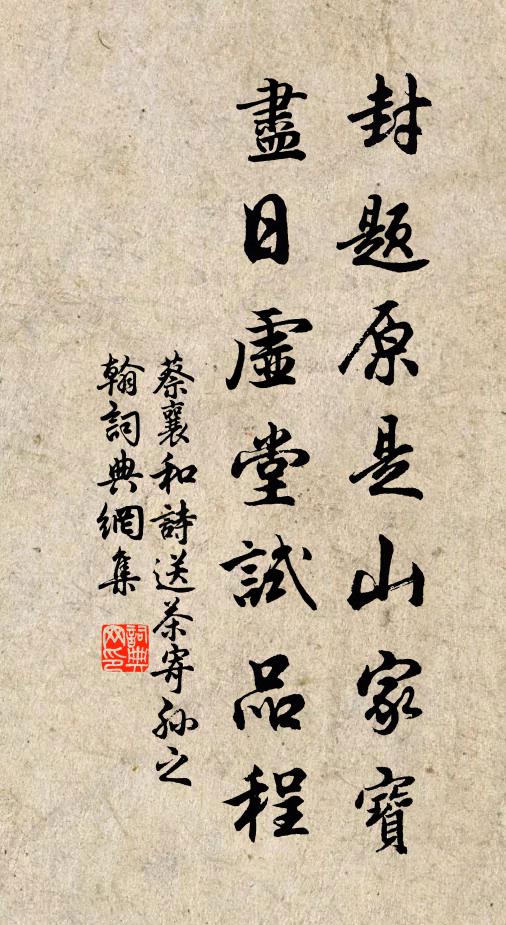 封題原是山家寶
盡日虛堂試品程
蔡襄和詩送茶寄孫之
翰詞典網集
詞典网印